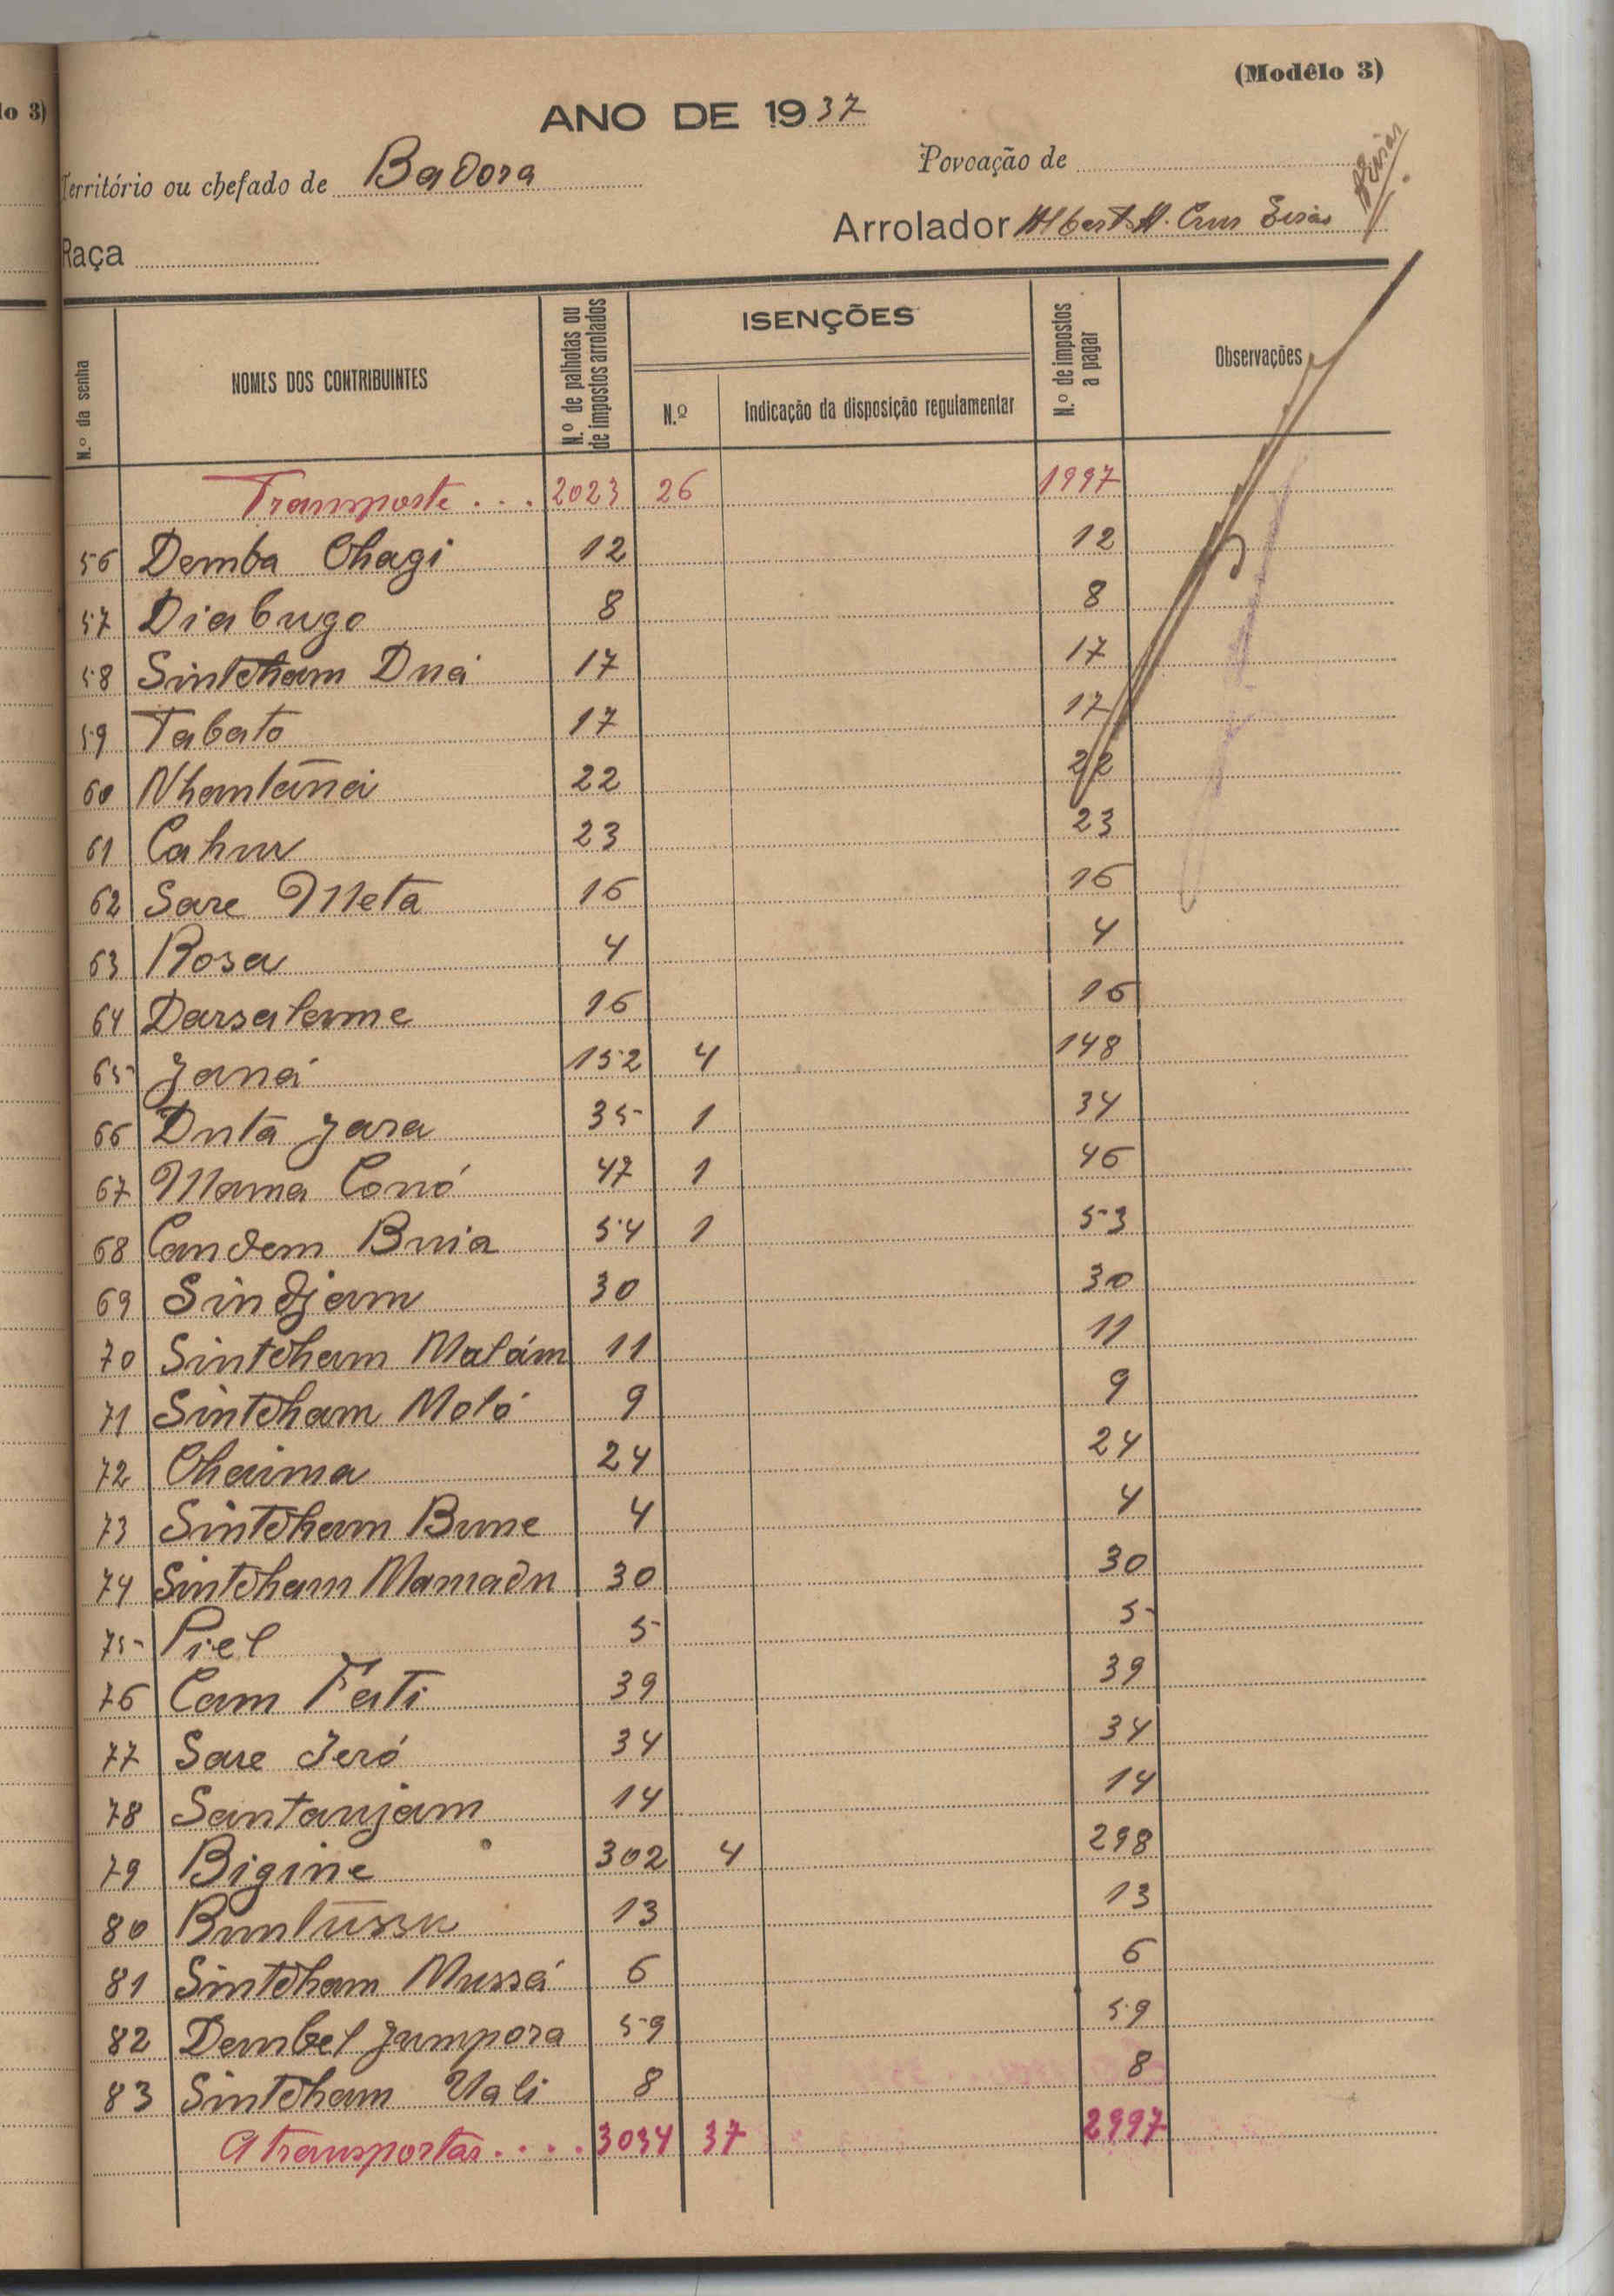 lo 3)
(Modêlo 3)
ANO DE 1937
Território ou chefado de Badora
Povoação de
Arrolador Albert A. Cruz
Raça
N.º da senha
NOMES DOS CONTRIBUINTES
N.º de palhotas ou de impostos arrolados
ISENÇÕES
N.º
Indicação da disposição regulamentar
N.º de impostos a pagar
Observações
Transporte . . . 2023 26 1997
56 Demba Chagi 12 12
57 Diabugo 8 8
58 Sintcham Duá 17 17
59 Tabato 17 17
60 Nhantaná 22 22
61 Cahur 23 23
62 Sare Meta 16 16
63 Rosa 4 4
64 Darsalame 16 16
65 Janá 152 4 148
66 Duta Jara 35 1 34
67 Mama Conó 47 1 46
68 Candem Buia 54 1 53
69 Sindjam 30 30
70 Sintcham Malám 11 11
71 Sintcham Moló 9 9
72 Chaima 24 24
73 Sintcham Bune 4 4
74 Sintcham Mamadu 30 30
75 Piel 5 5
76 Cam Fati 39 39
77 Sare Jeró 34 34
78 Santanjam 14 14
79 Bigine 302 4 298
80 Buntussu 13 13
81 Sintcham Mussá 6 6
82 Dembel Jumpora 59 59
83 Sintcham Vali 8 8
A transportar . . . . 3034 37 2997